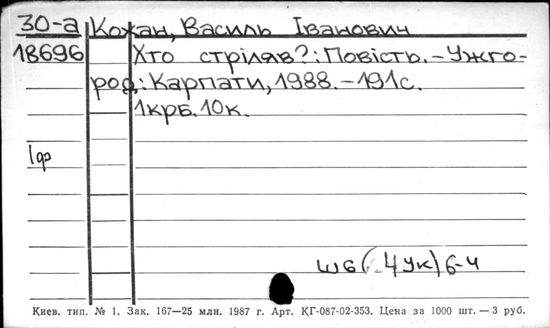 30-а Кожан, Василь Іванович
18696 Хто стріляв?: Повість. – Ужго-
род: Карпати, 1988. – 191с.
1крб. 10к.
1ф
Ш6(4Ук)6-4
Киев. тип. № 1. Зак. 167—25 млн. 1987 г. Арт. КГ-087-02-353. Цена за 1000 шт. — 3 руб.